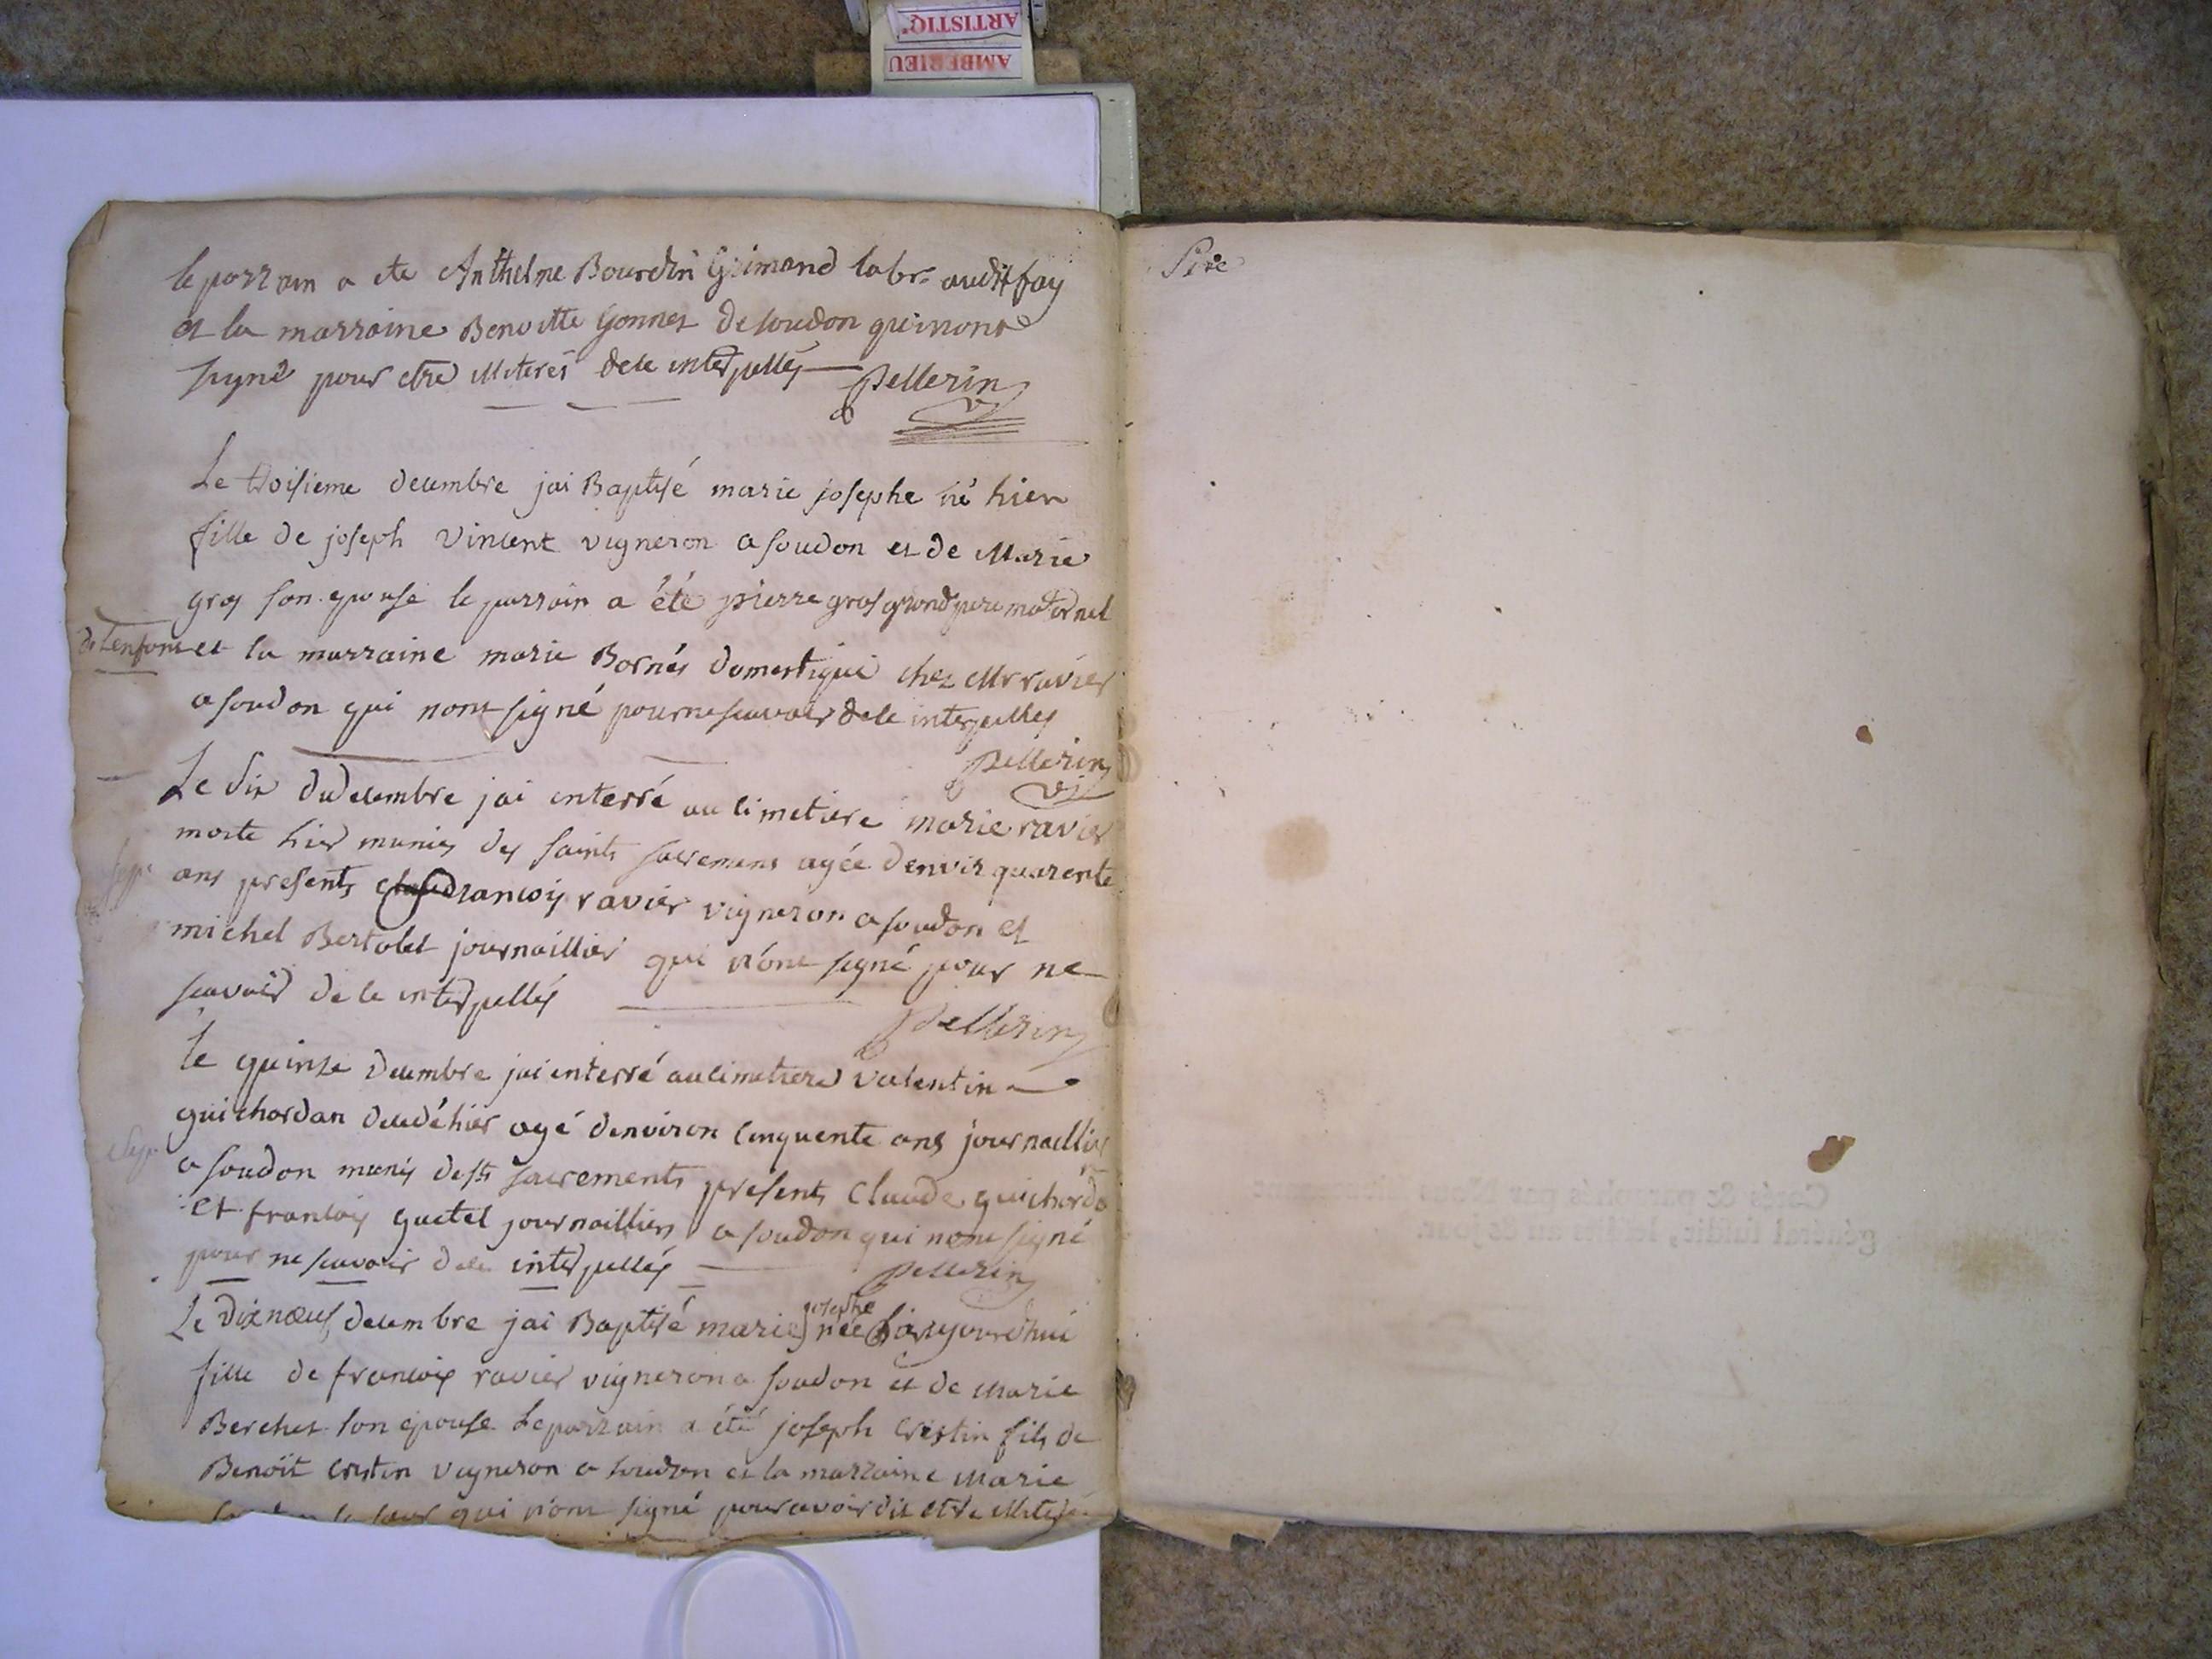 ARTISTIQ'
AMBERIEU
le parrain a ete Anthelme Bourdin Grimand labr. audit fay
et la marraine Benoitte Gonnet de soudon qui n'ont
signé pour etre illiterés de ce interpellés
Pellerin
Le troisieme decembre jai Baptisé marie josephe né hier
fille de joseph Vincent vigneron a soudon et de Marie
gros son epouse le parrain a été pierre gros grand pere maternel
de Lenfant et la marraine marie Bornés domestique chez Mr ravier
a soudon qui nont signé pour ne scavoir de ce interpelles
Pellerin
Le Six du decembre jai enterré au cimetiere marie ravier
morte hier munies des saints sacremens agée d'envir quarente
ans presents francois ravier vigneron a soudon et
michel Bertolet journaillier qui n'ont signé pour ne
scavoir de ce interpellés
Pellerin
Le quinse decembre jai enterré au cimetiere valentin
guichordan decedé hier agé denviron cinquente ans journaillier
a soudon munis des sts sacrements presents Claude guichordan
et francois guetel journailliers a soudon qui nont signé
pour ne scavoir de ce interpellés
Pellerin
Le Dixnœuf decembre jai Baptisé marie josephe née aujourdhui
fille de francois ravier vigneron a soudon et de Marie
Berchet son epouse le parrain a été joseph Cristin fils de
Benoit cristin vigneron a soudon et la marraine Marie
sa sœur qui n'ont signé pour avoir dit etre illiterés
Cotés & paraphés par Nous
général susdit, les dits an & jour.